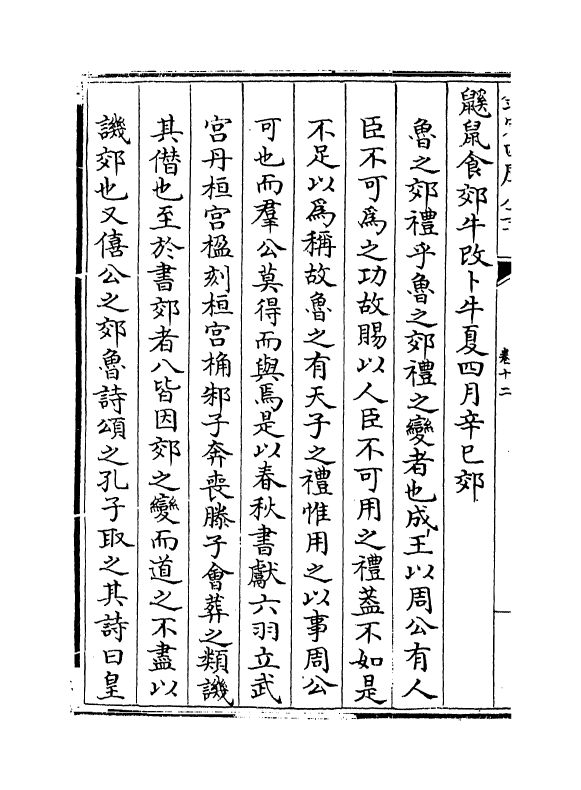 鼷鼠食郊牛改卜牛夏四月辛巳郊
魯之郊禮乎魯之郊禮之變者也成王以周公有人
臣不可為之功故賜以人臣不可用之禮葢不如是
不足以為稱故魯之有天子之禮惟用之以事周公
可也而羣公莫得而與焉是以春秋書獻六羽立武
宫丹桓宫楹刻桓宫桷邾子奔喪滕子會葬之類譏
其僭也至於書郊者八皆因郊之變而道之不盡以
譏郊也又僖公之郊魯詩頌之孔子取之其詩曰皇
卷十二